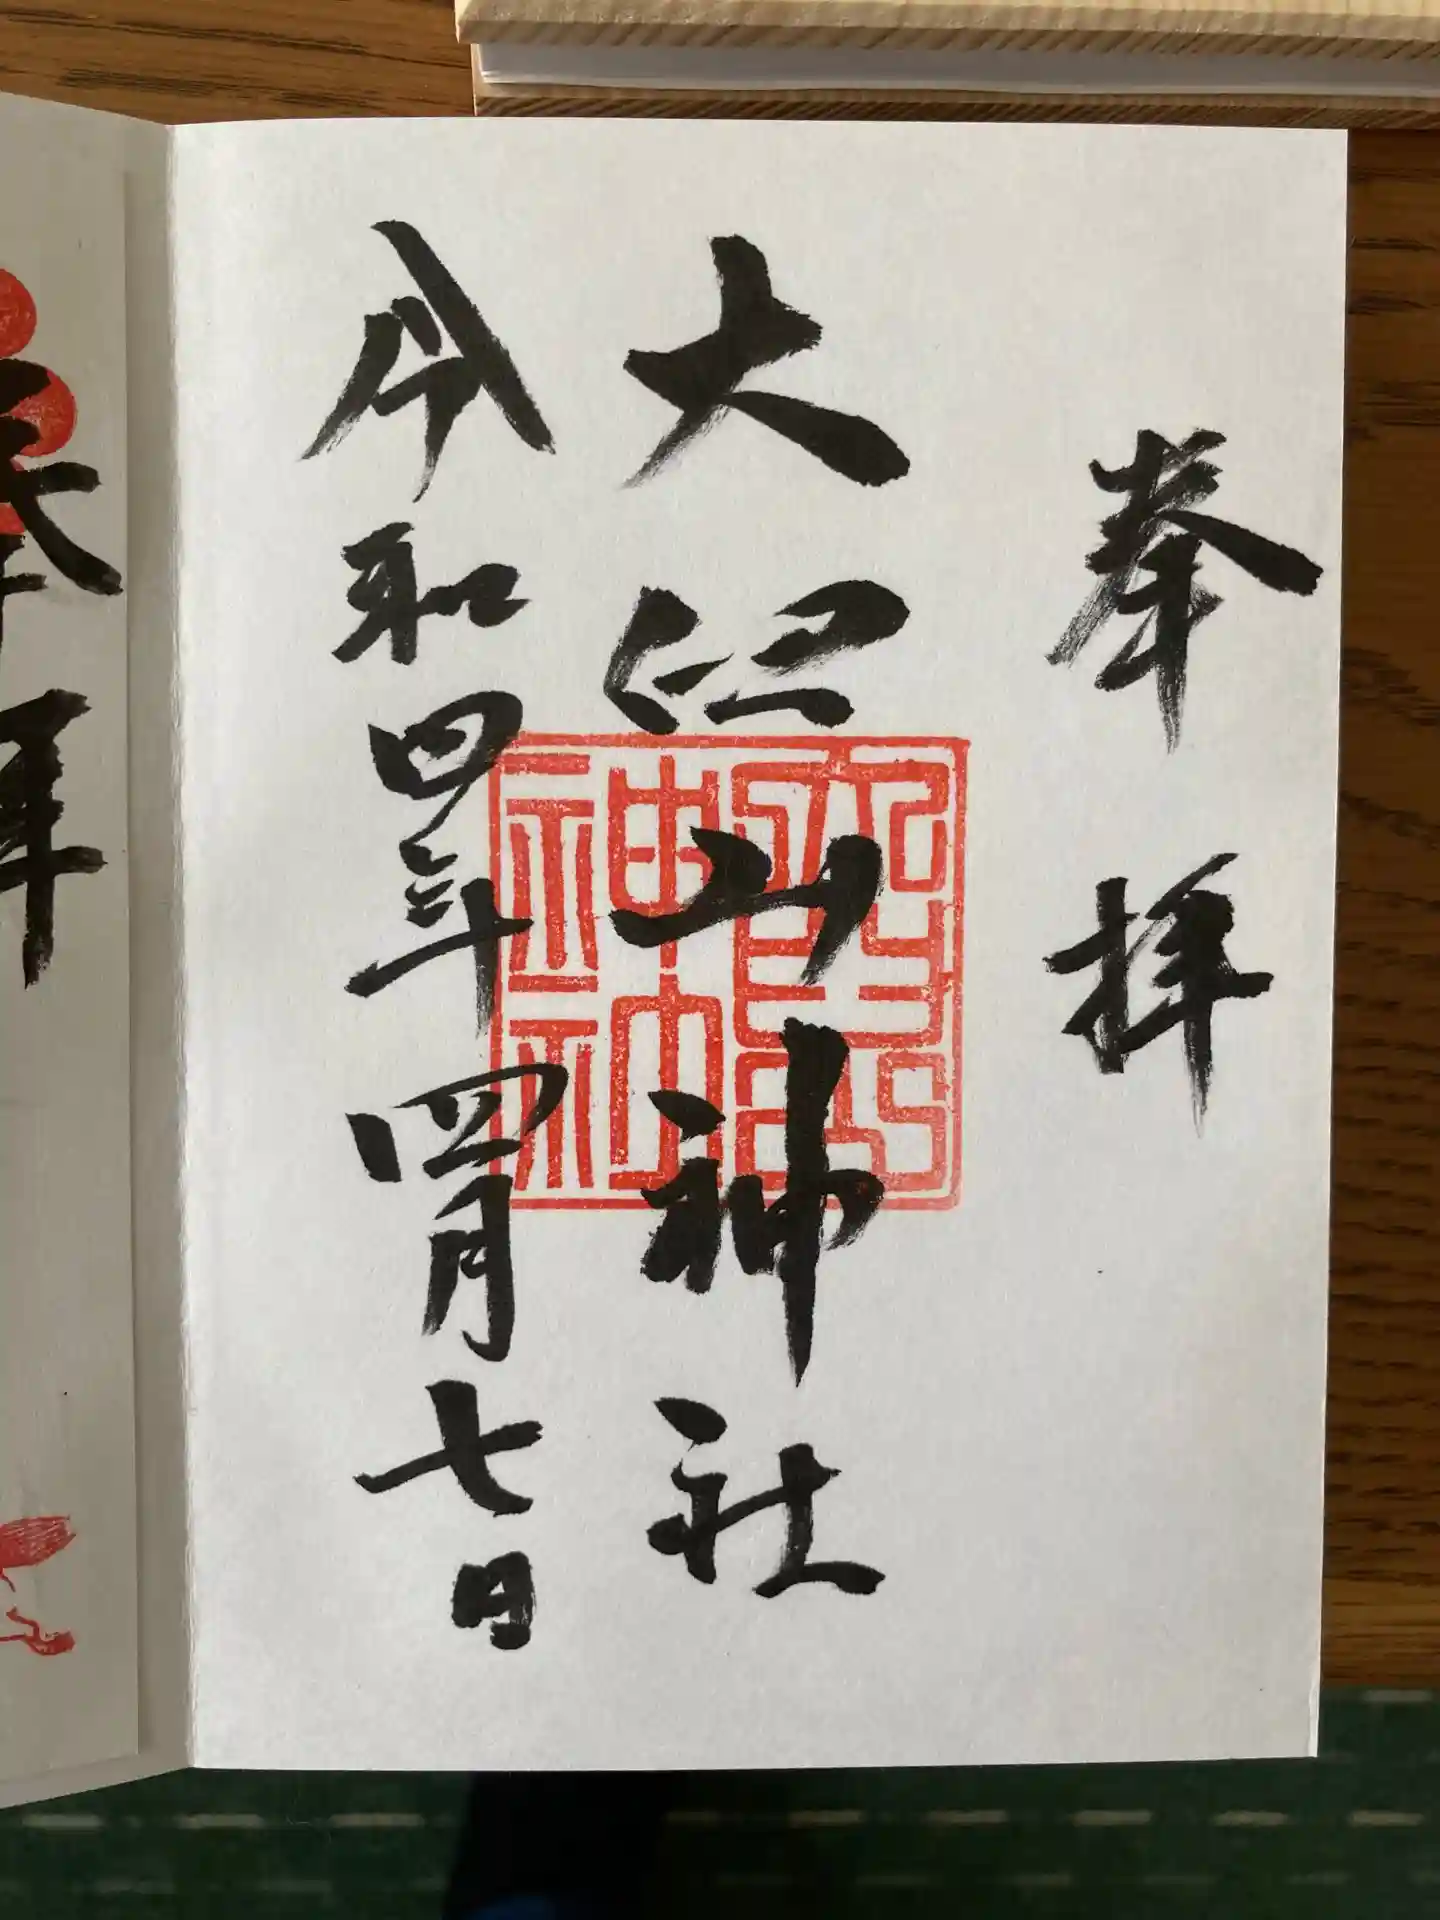 奉拝
大 山神社
令和四年四月七日